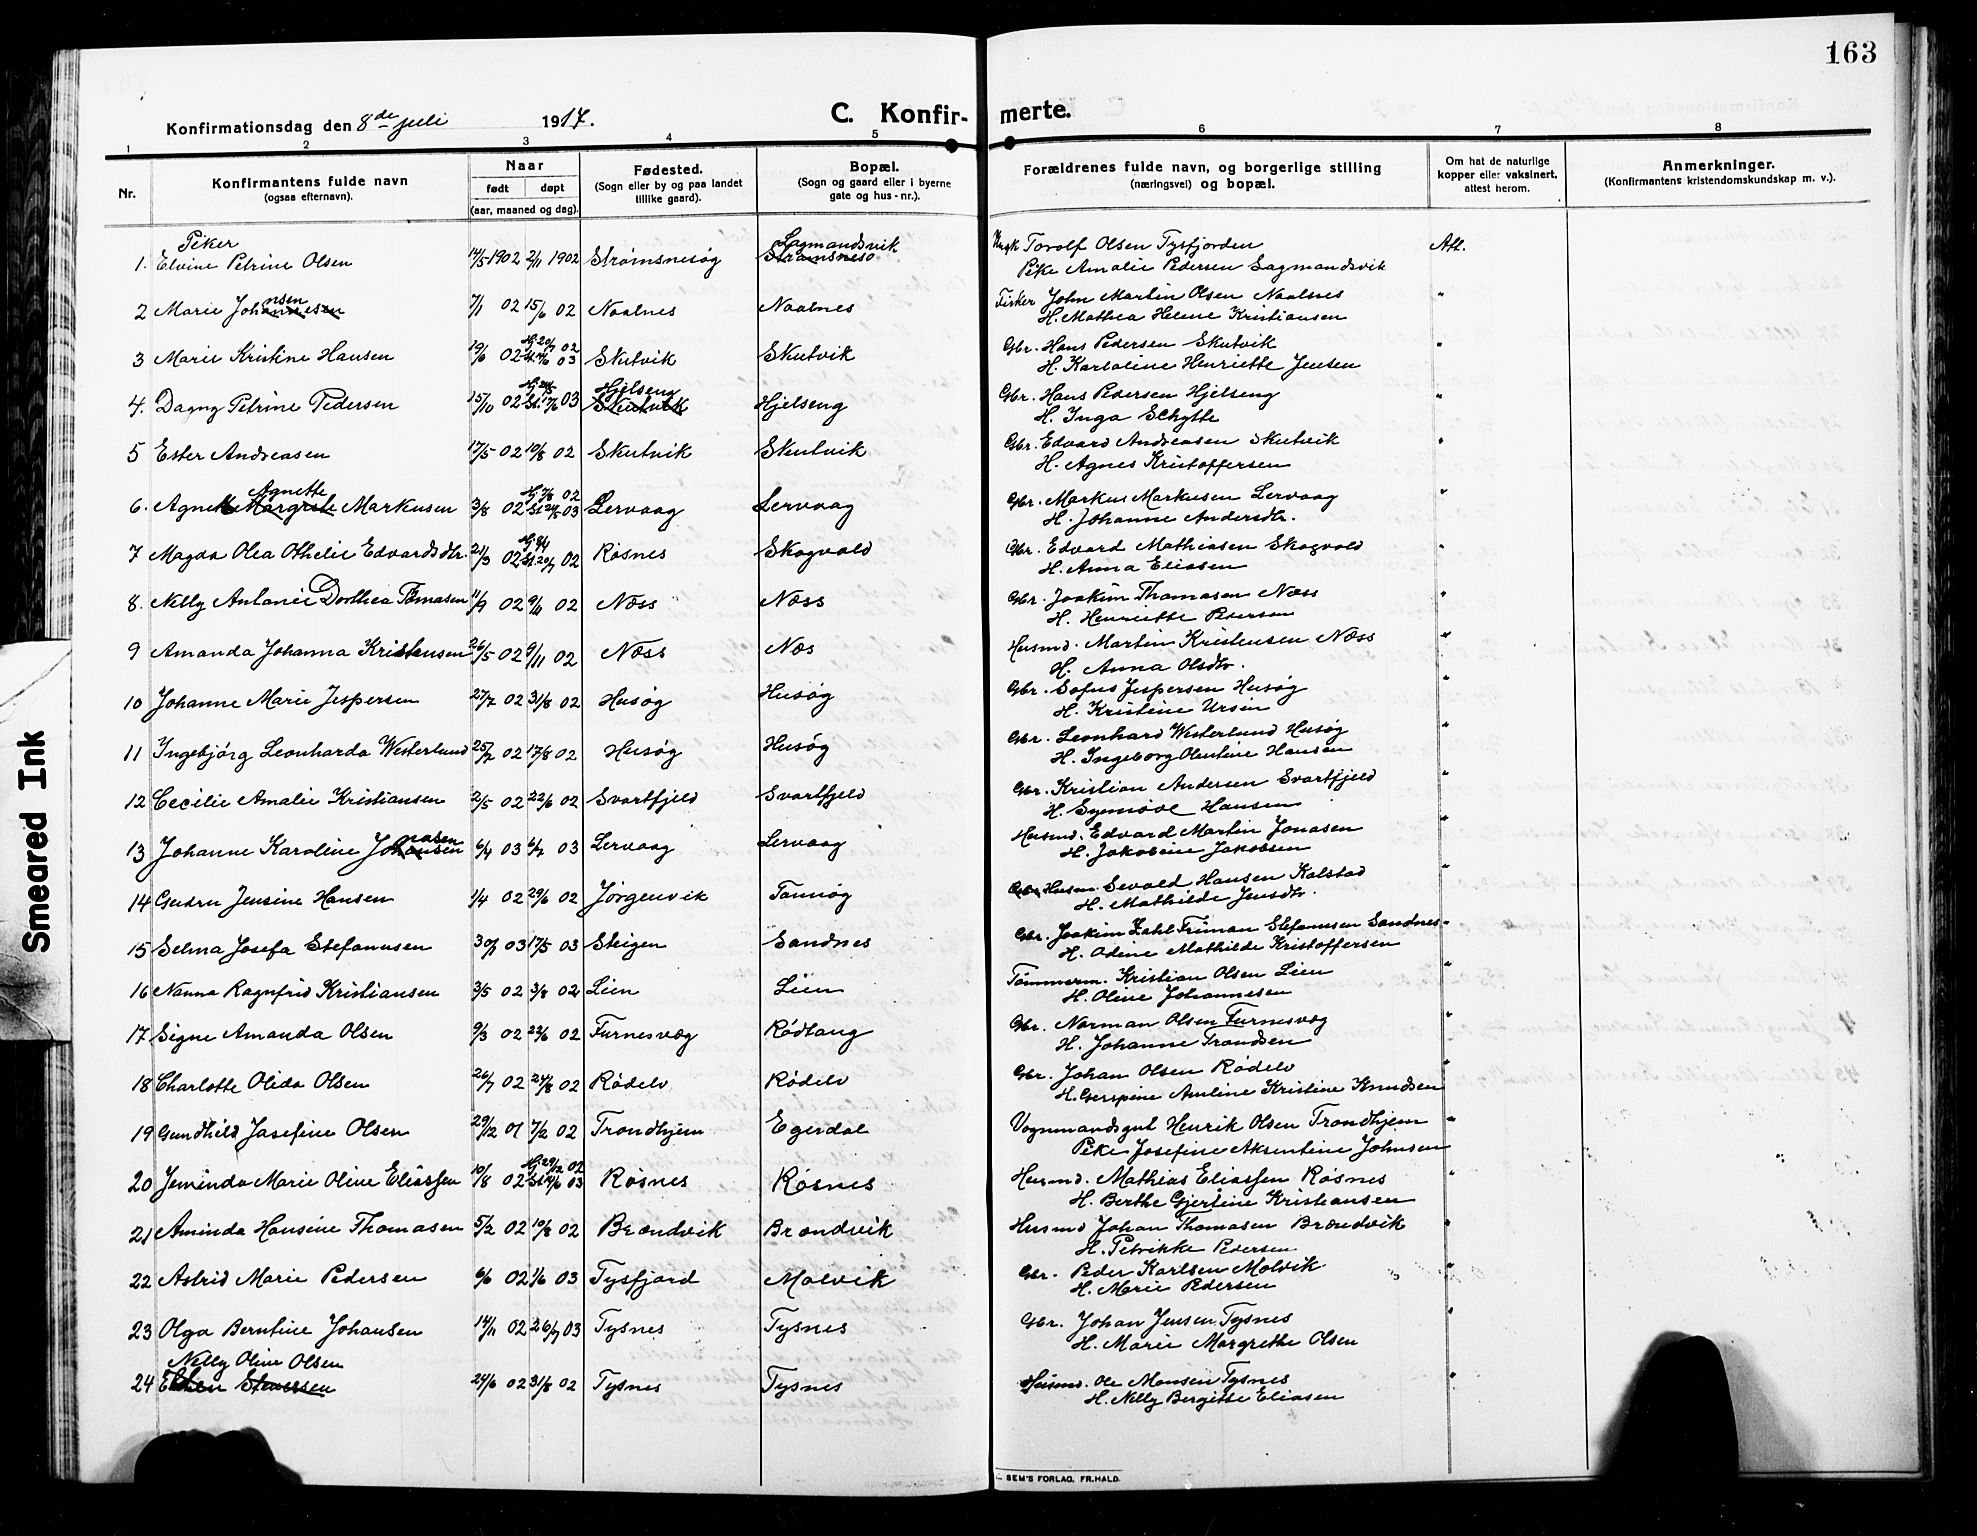 163
Konfirmationsdag den 8de juli 1917.
C. Konfirmerte.
1 2 3 4 5 6 7 8
Nr.
Konfirmantens fulde navn
(ogsaa efternavn).
Naar
født døpt
(aar, maaned og dag).
Fødested.
(Sogn eller by og paa landet
tillike gaard).
Bopæl.
(Sogn og gaard eller i byerne
gate og hus-nr.).
Forældrenes fulde navn, og borgerlige stilling
(næringsvei) og bopæl.
Om hat de naturlige
kopper eller vaksinert,
attest herom.
Anmerkninger.
(Konfirmantens kristendomskundskap m. v.).
Piker
1. Elvine Petrine Olsen 14/5 1902 2/11 1902 Strømsnesøg Strømsnesø Lagmandsvik Ungk Torolf Olsen Tysfjorden Att.
Pike Amalie Pedersen Lagmandsvik
2 Marie Johannesen nsen 7/1 02 15/6 02 Naalnes Naalnes Fisker John Martin Olsen Naalnes "
H. Mathea Helene Kristiansen
3 Marie Kristine Hansen 19/6 02 Hj. 20/7 02 03 Skutvik Skutvik Gbr. Hans Pedersen Skutvik "
H. Karoline Henriette Jensen
4. Dagny Petrine Pedersen 15/10 02 03 Skutvik Hjelseng Hjelseng Gbr. Hans Pedersen Hjelseng "
H. Inga Schytte
5 Ester Andreasen 17/5 02 10/8 02 Skutvik Skutvik Gbr. Edvard Andreasen Skutvik "
H. Agnes Kristoffersen
6. Agnete Margrete Agnette Markusen 3/8 02 Hj 7/8 02 St 21/5 03 Lervaag Lervaag Gbr. Markus Markusen Lervaag "
H. Johanne Andersdtr.
7 Magda Olea Othelie Edvardsdtr. 21/3 02 St. 20/7 02 Røsnes Skogvold Gbr. Edvard Mathiasen Skogvold "
H. Anna Eliasen
8. Nelly Antonie Dorthea Tomasen 11/9 02 9/11 02 Næss Næss Gbr. Joakim Thomasen Næss "
H. Henriette Pedersen
9 Amanda Johanna Kristensen 26/5 02 9/11 02 Næss Næs Husmd. Martin Kristensen Næss "
H. Anna Olsdtr.
10 Johanne Marie Jespersen 27/7 02 31/8 02 Husøg Husøg Gbr. Sofus Jespersen Husøg "
H. Kristine Ursin
11 Ingebjørg Leonharda Westerlund 25/7 02 17/8 02 Husøg Husøg Gbr. Leonhard Westerlund Husøg "
H. Ingeborg Olentine Hansen
12 Cecilie Amalie Kristiansen 2/5 02 22/6 02 Svartfjeld Svartfjeld Gbr. Kristian Andersen Svartfjeld "
H. Synnøve Hansen
13 Johanne Karoline Johansen nasen 6/4 03 6/7 03 Lervaag Lervaag Husmd. Edvard Martin Jonasen "
H. Jakobine Jakobsen
14 Gudru Jensine Hansen 1/4 02 29/6 02 Jørgenvik Tannøg Gbr Husm. Sevald Hansen Kalstad "
H. Mathilde Jensdtr.
15 Selma Josefa Stefanusen 03 17/5 03 Steigen Sandnes Gbr. Joakim Zahl Friman Stefanusen Sandnes "
H. Odine Mathilde Kristoffersen
16 Nanna Ragnfrid Kristiansen 3/5 02 3/8 02 Lien Lien Tømmerm. Kristian Olsen Lien "
H. Oline Johannesen
17 Signe Amanda Olsen 9/3 02 22/6 02 Furnesvæg Rødtang Gbr. Norman Olsen Furnesvæg "
H. Johanne Trondsen
18 Charlotte Olida Olsen 26/7 02 24/8 02 Rødelv Rødelv Gbr. Johan Olsen Rødelv "
H. Gerspine Amline Kristine Knudsen
19 Gundhild Josefine Olsen 29/12 01 7/2 02 Trondhjem Egerdal Vognmandsgut Henrik Olsen Trondhjem "
Pike Josefine Aksentine Johnsen
20 Jeminda Marie Oline Eliassen 10/8 02 Hj 29/12 02 St 14/6 03 Røsnes Røsnes Husmd. Mathias Eliassen Røsnes "
H. Berthe Gjertine Kristiansen
21 Aminda Hansine Thomasen 5/2 02 10/8 02 Brændvik Brændvik Husmd Johan Thomasen Brændvik "
H. Petrikke Pedersen
22 Astrid Marie Pedersen 6/6 02 1/6 03 Tysfjord Molvik Gbr. Peder Karlsen Molvik "
H. Marie Pedersen
23 Olga Berntine Johansen 14/11 02 26/7 03 Tysnes Tysnes Gbr. Johan Jensen Tysnes "
H. Marie Margrethe Olsen
Nelly Oline Olsen
24 24/6 02 31/8 02 Tysnes Tysnes Husmd. Ole Monsen Tysnes "
H. Nelly Bergitte Eliasen
SEM'S FORLAG, FR.HALD.
Smeared Ink